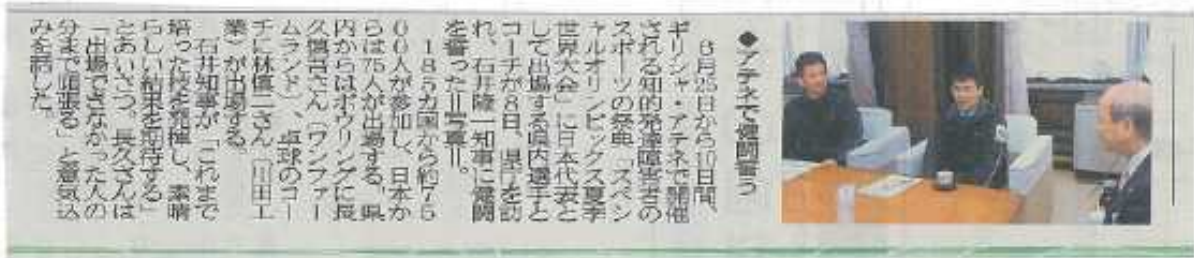 ◆アテネで健闘誓う
　6月25日から10日間、
ギリシャ・アテネで開催
される知的発達障害者の
スポーツの祭典「スペシ
ャルオリンピックス夏季
世界大会」に日本代表と
して出場する県内選手と
コーチが8日、県庁を訪
れ、石井隆一知事に健闘
を誓った＝写真＝。
　185カ国から約75
00人が参加し、日本か
らは75人が出場する。県
内からはボウリングに長
久慎吾さん（ワンファー
ムランド）、卓球のコー
チに林慎二さん（川田工
業）が出場する。
　石井知事が「これまで
培った技を発揮し、素晴
らしい結果を期待する」
とあいさつ。長久さんは
「出場できなかった人の
分まで頑張る」と意気込
みを話した。